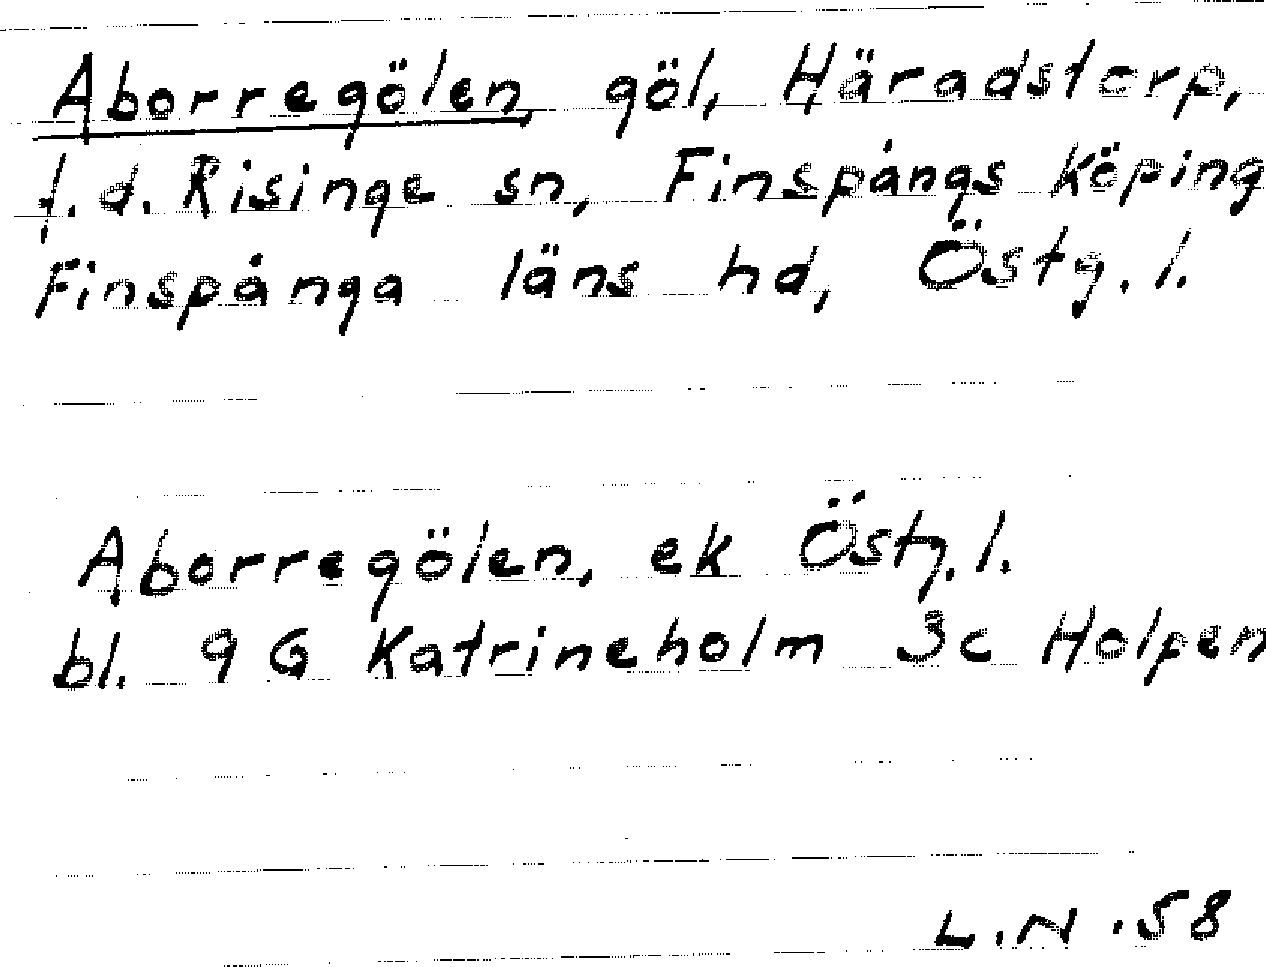 Aborregölen, göl, Häradstorp,
f.d. Risinge sn, Finspångs köping
Finspånga läns hd, Östg.l.
Aborregölen, ek Östg.l.
bl. 9G Katrineholm 3c Holpen
L.N.58